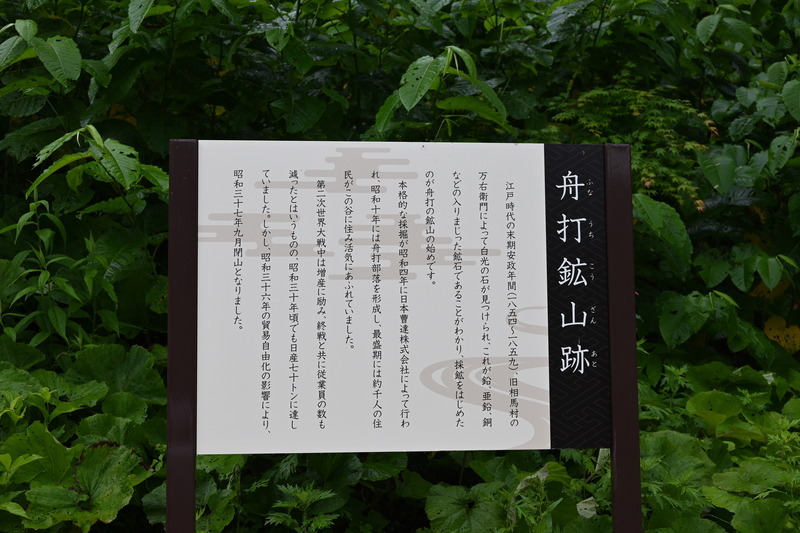 舟打鉱山跡
ふなうちこうざんあと
江戸時代の末期安政年間(一八五四〜一八五九)、旧相馬村の
万右衛門によって白光の石が見つけられ、これが鉛、亜鉛、銅
などの入りまじった鉱石であることがわかり、採鉱をはじめた
のが舟打の鉱山の始めです。
本格的な採掘が昭和四年に日本曹達株式会社によって行わ
れ、昭和十年には舟打部落を形成し、最盛期には約千人の住
民がこの谷に住み活気にあふれていました。
第二次世界大戦中は増産に励み、終戦と共に従業員の数も
減ったとはいうものの、昭和三十年頃でも日産七十トンに達し
ていました。しかし、昭和三十六年の貿易自由化の影響により、
昭和三十七年九月閉山となりました。